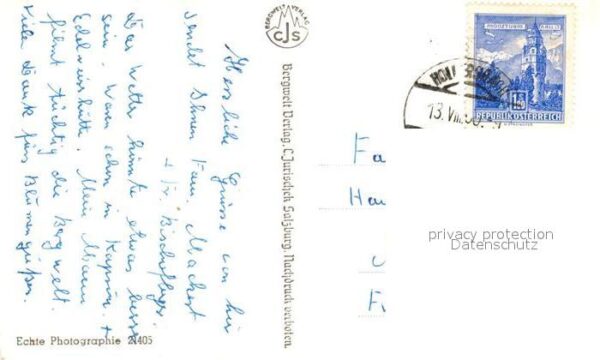 Herzliche Grüsse von hier
sendet Ihnen Fam. Machert
u. Fr. Bischofberger.
Das Wetter könnte etwas besser
sein. Waren schon in Kaprun. +
Edelweisshütte. Mein Mann
filmt tüchtig die Bergwelt.
Vielen Dank fürs Blumengießen.
Echte Photographie 21405
BERGWELT-VERLAG
CJS
Bergwelt Verlag, C. Jurischek Salzburg, Nachdruck verboten.
REPUBLIK ÖSTERREICH
Fa
privacy protection
Datenschutz